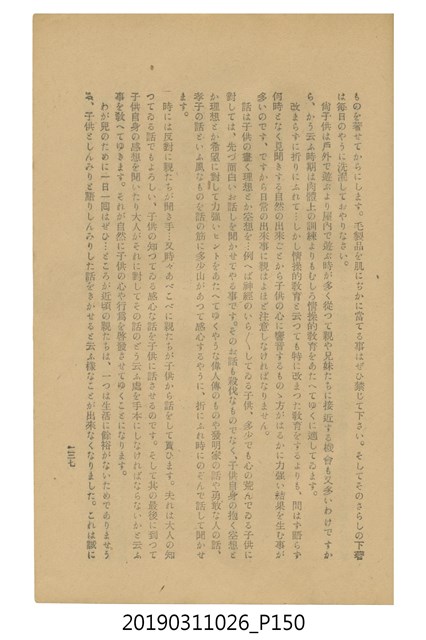 ものを著せてからにします。毛製品を肌にぢかに當てる事はぜひ禁じて下さい。そしてそのさらしの下著
は毎日のやうに洗濯しておやりなさい。
尙子供は戶外で遊ぶより屋內で遊ぶ時が多く從つて親や兄妹たちに接近する機會も又多いわけですか
ら、かう云ふ時期は肉體上の訓練よりもむしろ情操的敎育をあたへてゆくに適してゐます。
改まらずに折りにふれて…しかし情操的敎育と云つても特に改まつた敎育をするよりも、問はず語らず
何時となく見聞きする自然の出來ごとから子供の心に響する ものゝ方がはるかに力强い結果を生む事が
多いのです、ですから日常の出來事に親はよほど注意しなければなりません。
話は子供の畫く理想とか空想を…例へば神經のいら〳〵してゐる子供、多少でも心の荒んでゐる子供に
對しては、先づ面白いお話しを聞かせてやる事です。そのお話も殺伐なものでなく、子供自身の抱く空想と
か理想とか希望に對して力强いヒントをあたへてゆくやうな偉人傳のものや發明家の話や勇敢な人の話、
孝子の話といふ風なものを話の筋に多少山があつて感心するやうに、折にふれ時にのぞんで話して聞かせ
ます。
一時には反對に親たちが聞き手…又時々あべこべに親たちが子供から話をして貰ひます。夫れは大人の知
つてゐる話でもよろしい、子供の知つてゐる感心な話を子供に話させるのです。そして其の最後に到つて
子供自身の感想を聞いたり大人がそれに對してその話のどう云ふ處を手本にしなければならないかと云ふ
事を敎へてゆきます。それが自然に子供の心や行爲を啓發させてゆくことになります。
わが兒のために一日一問はぜひ…ところが近頃の親たちは、一つは生活に餘裕がないためでありませう
が、子供としんみりと語りしんみりした話をきかせると云ふ樣なことが出來なくなりました。これは誠に
一三七
20190311026_P150